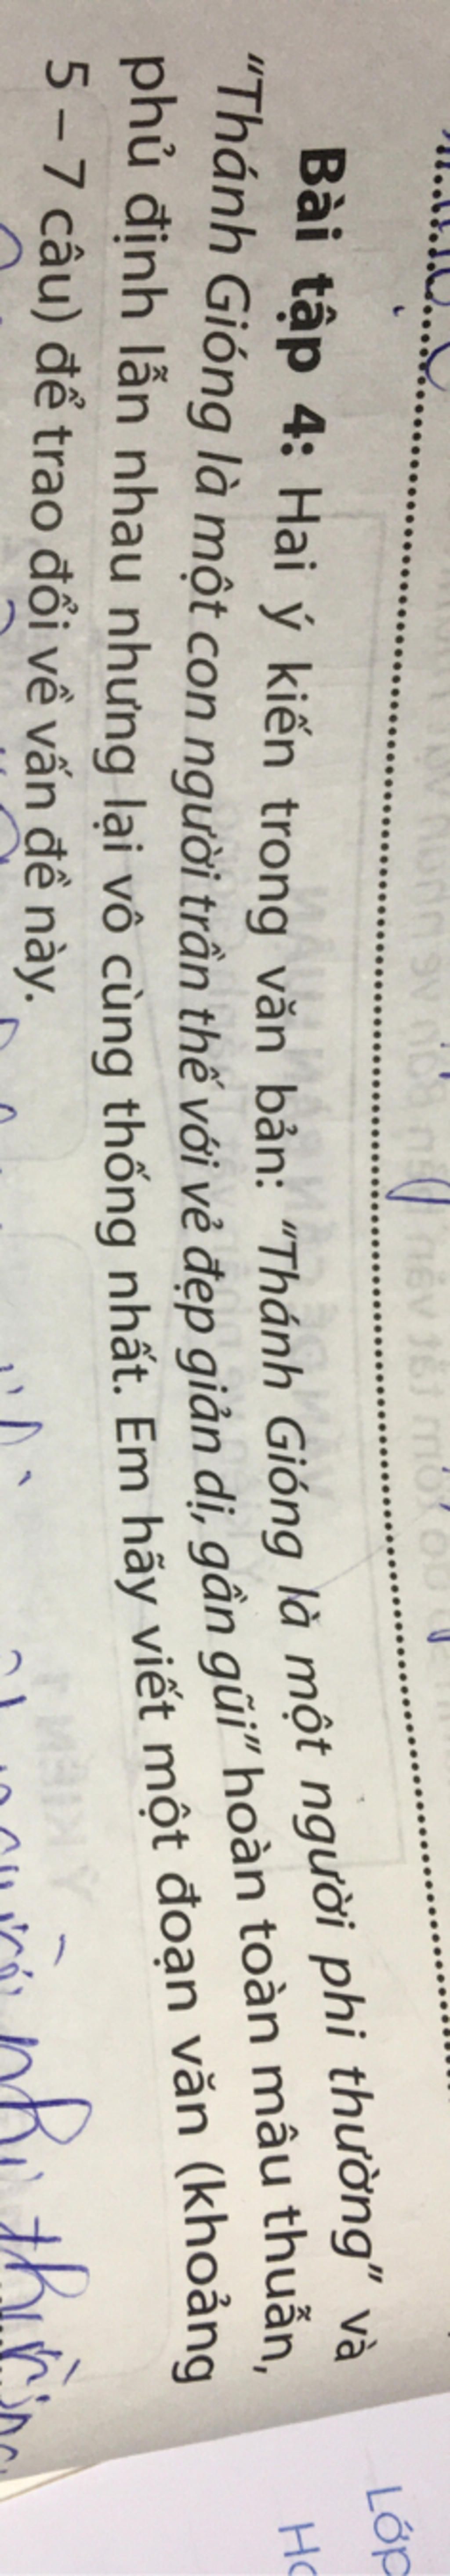 Bài tập 4: Hai ý kiến trong văn bản: "Thánh Gióng là một người phi thường" và
"Thánh Gióng là một con người trần thế với vẻ đẹp giản dị, gần gũi" hoàn toàn mâu thuẫn,
phủ định lẫn nhau nhưng lại vô cùng thống nhất. Em hãy viết một đoạn văn (khoảng
5 – 7 câu) để trao đổi về vấn đề này.
Lớp